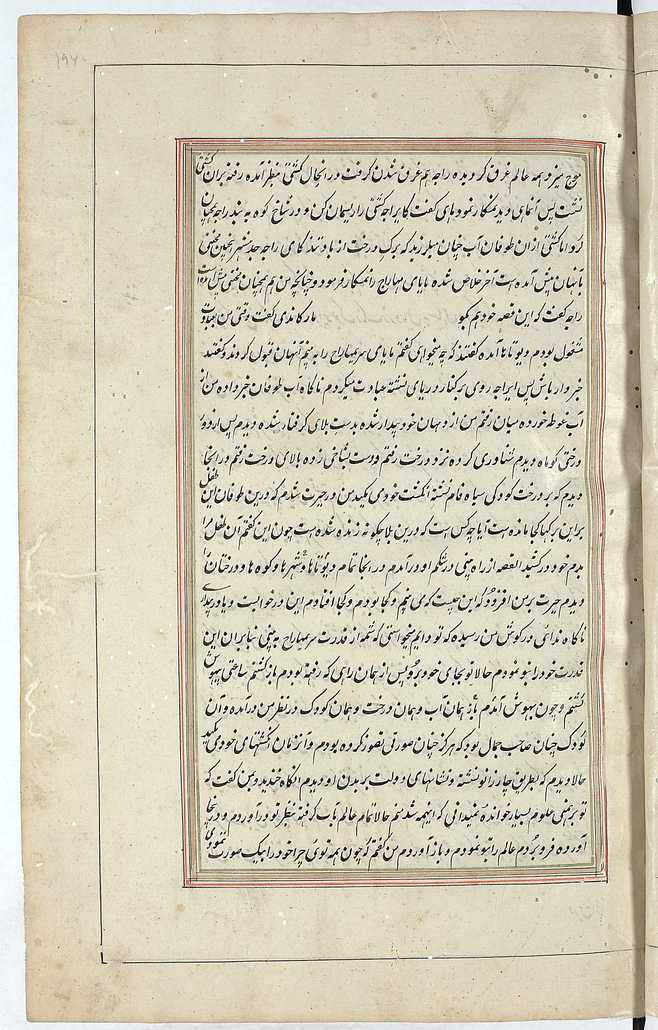 ۱۹۷
موج میزد و همه عالم غرق گردیده راجه هم غرق شدن گرفت در انحال کشتی بنظر آمده رفته بران کشتی
نشست پس آنماهی دید نمسکار نمود ماهی گفت کای راجه کشتی را ریسمان کن و در شاخ کوه به بند راجه همچنان
کرد اما کشتی از ان طوفان آب چنان میلرزید که برگ درخت از باد تند کای راجه جدمشتر بچنین محنتی
با آنهان پیش آمده است آخر خلاص شده مایای مهاراج را نمسکار فرمود و چنانچه من هم همچنان محنتی
راجه گفت که این قصه خود هم بگو مارکاندی گفت وقتی من بعبادت
مشغول بودم دیوتاها آمده گفتند که چه میخواهی گفتم مایای سریمهاراج را به بینم آنهان قبول کردند و گفتند
خبردار باش پس ایراجه روزی بر کنار دریای نشسته عبادت میکردم ناگاه آب طوفان خبر داده من از
آب غوطه خورده میان رفتم من از و بهان خود بیدار شده بدست بلای گرفتار شده دیدم پس از دور
درختی کوتاه دیدم شناوری کرده نزد درخت رفتم و دست بشاخی زده بالای درخت رفتم در انجا
دیدم که بر درخت کودکی سیاه فام نشسته انگشت خود می مکید من در حیرت شدم که درین طوفان این طفل
بر این برگها کجا مانده است آیا چه کس است که درین بلا چگونه زنده شده است چون این گفتم آن طفل مرا
بدم خود در کشید القصه از راه بینی در شکم او در آمدم در انجا تمام دیوتاها و شهرها و کوه ها و درختان را
دیدم حیرت بر من افزود که این چیست که می بینم و کجا بودم و کجا افتادم این در خوابست و یا در بیداری
ناگاه ندای در گوش من رسیده که تو دایم میخواستی که شمه از قدرت سریمهاراج به بینی بنا بران این
قدرت خود را بتو نمودم حالا تو بجای خود برو پس از همان راهی که رفته بودم باز گشتم ساعتی بیهوش
گشتم و چون بهوش آمدم باز همان آب و همان درخت و همان کودک در نظر من در آمده و آن
کودک چنان صاحب جمال بود که هرگز چنان صورتی تصور نکرده بودم و آنزمان انگشتهای خود می مکید
حالا دیدم که بطریق چار زانو نشسته و نشانهای دولت بر بدن او دیدم آنگاه خندید و بمن گفت که
تو برهمنی علوم بسیار خوانده نمیدانی که اینهمه شده ام حالا تمام عالم تاب گرفته بنظر تو در آوردم و در انجا
آورده فرو بردم عالم را بتو نمودم و باز آوردم من گفتم که چون همه توئی چرا خود را بیک صورت ننمودی